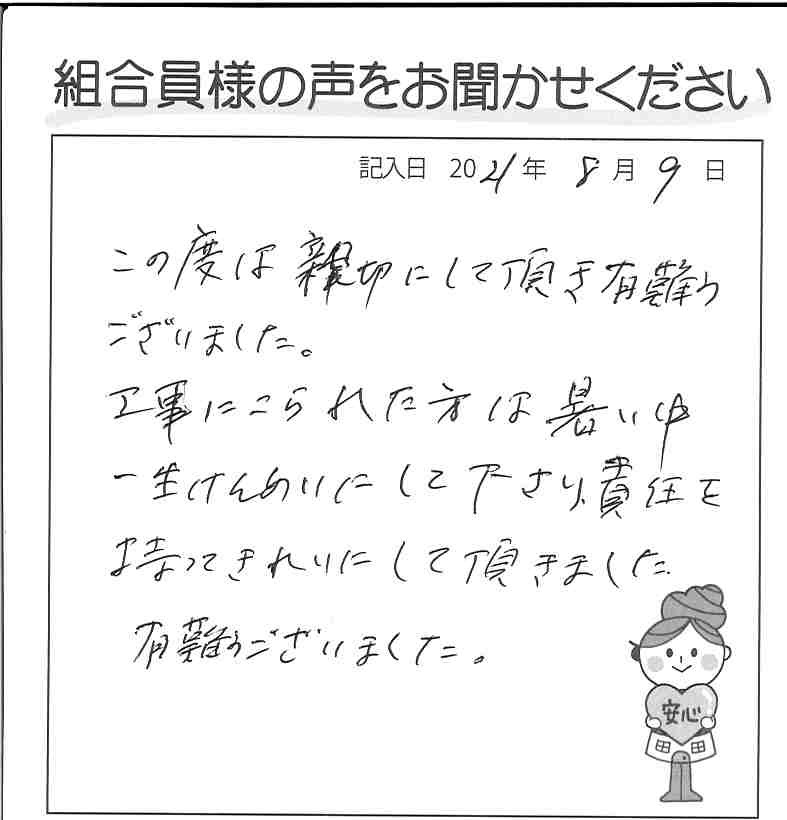 組合員様の声をお聞かせください
記入日 2021年 8月9日
この度は親切にして頂き有難う
ございました。
工事にこられた方は暑い中
一生けんめいにして下さり、責任を
持ってきれいにして頂きました
有難うございました。
安心